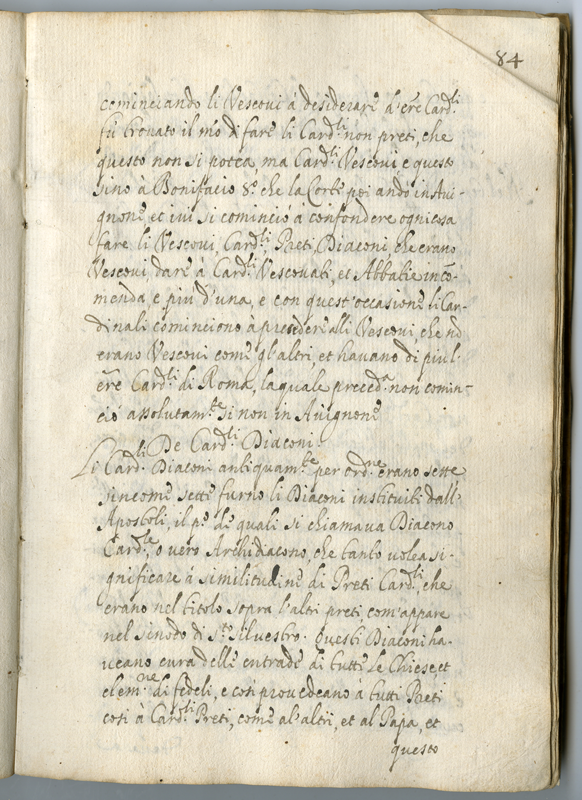 84
cominciando li Vescovi à desiderare d'ẽre Card.li
fù trovato il mõ di fare li Card.li non preti, che
questo non si potea ma Card.li Vescovi e questo
sino à Bonifacio 8.º che la Corte poi andò in Avi-
gnone et ivi si cominciò à confondere ogni cosa
fare li Vescovi, Card.li Preti, Diaconi, che erano
Vescovi, dare à Card.li Vescovati, et Abbatie in cõ-
menda, e più d'una, e con quest'occasione li Car-
dinali cominciono à precedere alli Vescovi, che nõ
erano Vescovi come gl'altri, et havano di più l'
ẽre Card.li di Roma, la quale preced.a non comin-
ciò assolutam.te si non in Avignone
De Card.li Diaconi
Li Card.li Diaconi antiquam.te per ord.ne erano sette
sincome sette furno li Diaconi instituiti dall'
Apostoli, il p.º de quali si chiamava Diacono
Card.le, o vero Archidiacono, che tanto volea si-
gnificare à similitudine di Preti Card.li, che
erano nel titolo sopra l'altri preti, com'appare
nel sinodo di S.to Silvestro. Questi Diaconi ha-
veano cura delle entrade di tutte le Chiese, et
elem.ne di fedeli, e così provedeano à tutti Preti
così à Card.li Preti, come al'altri, et al Papa, et
questo